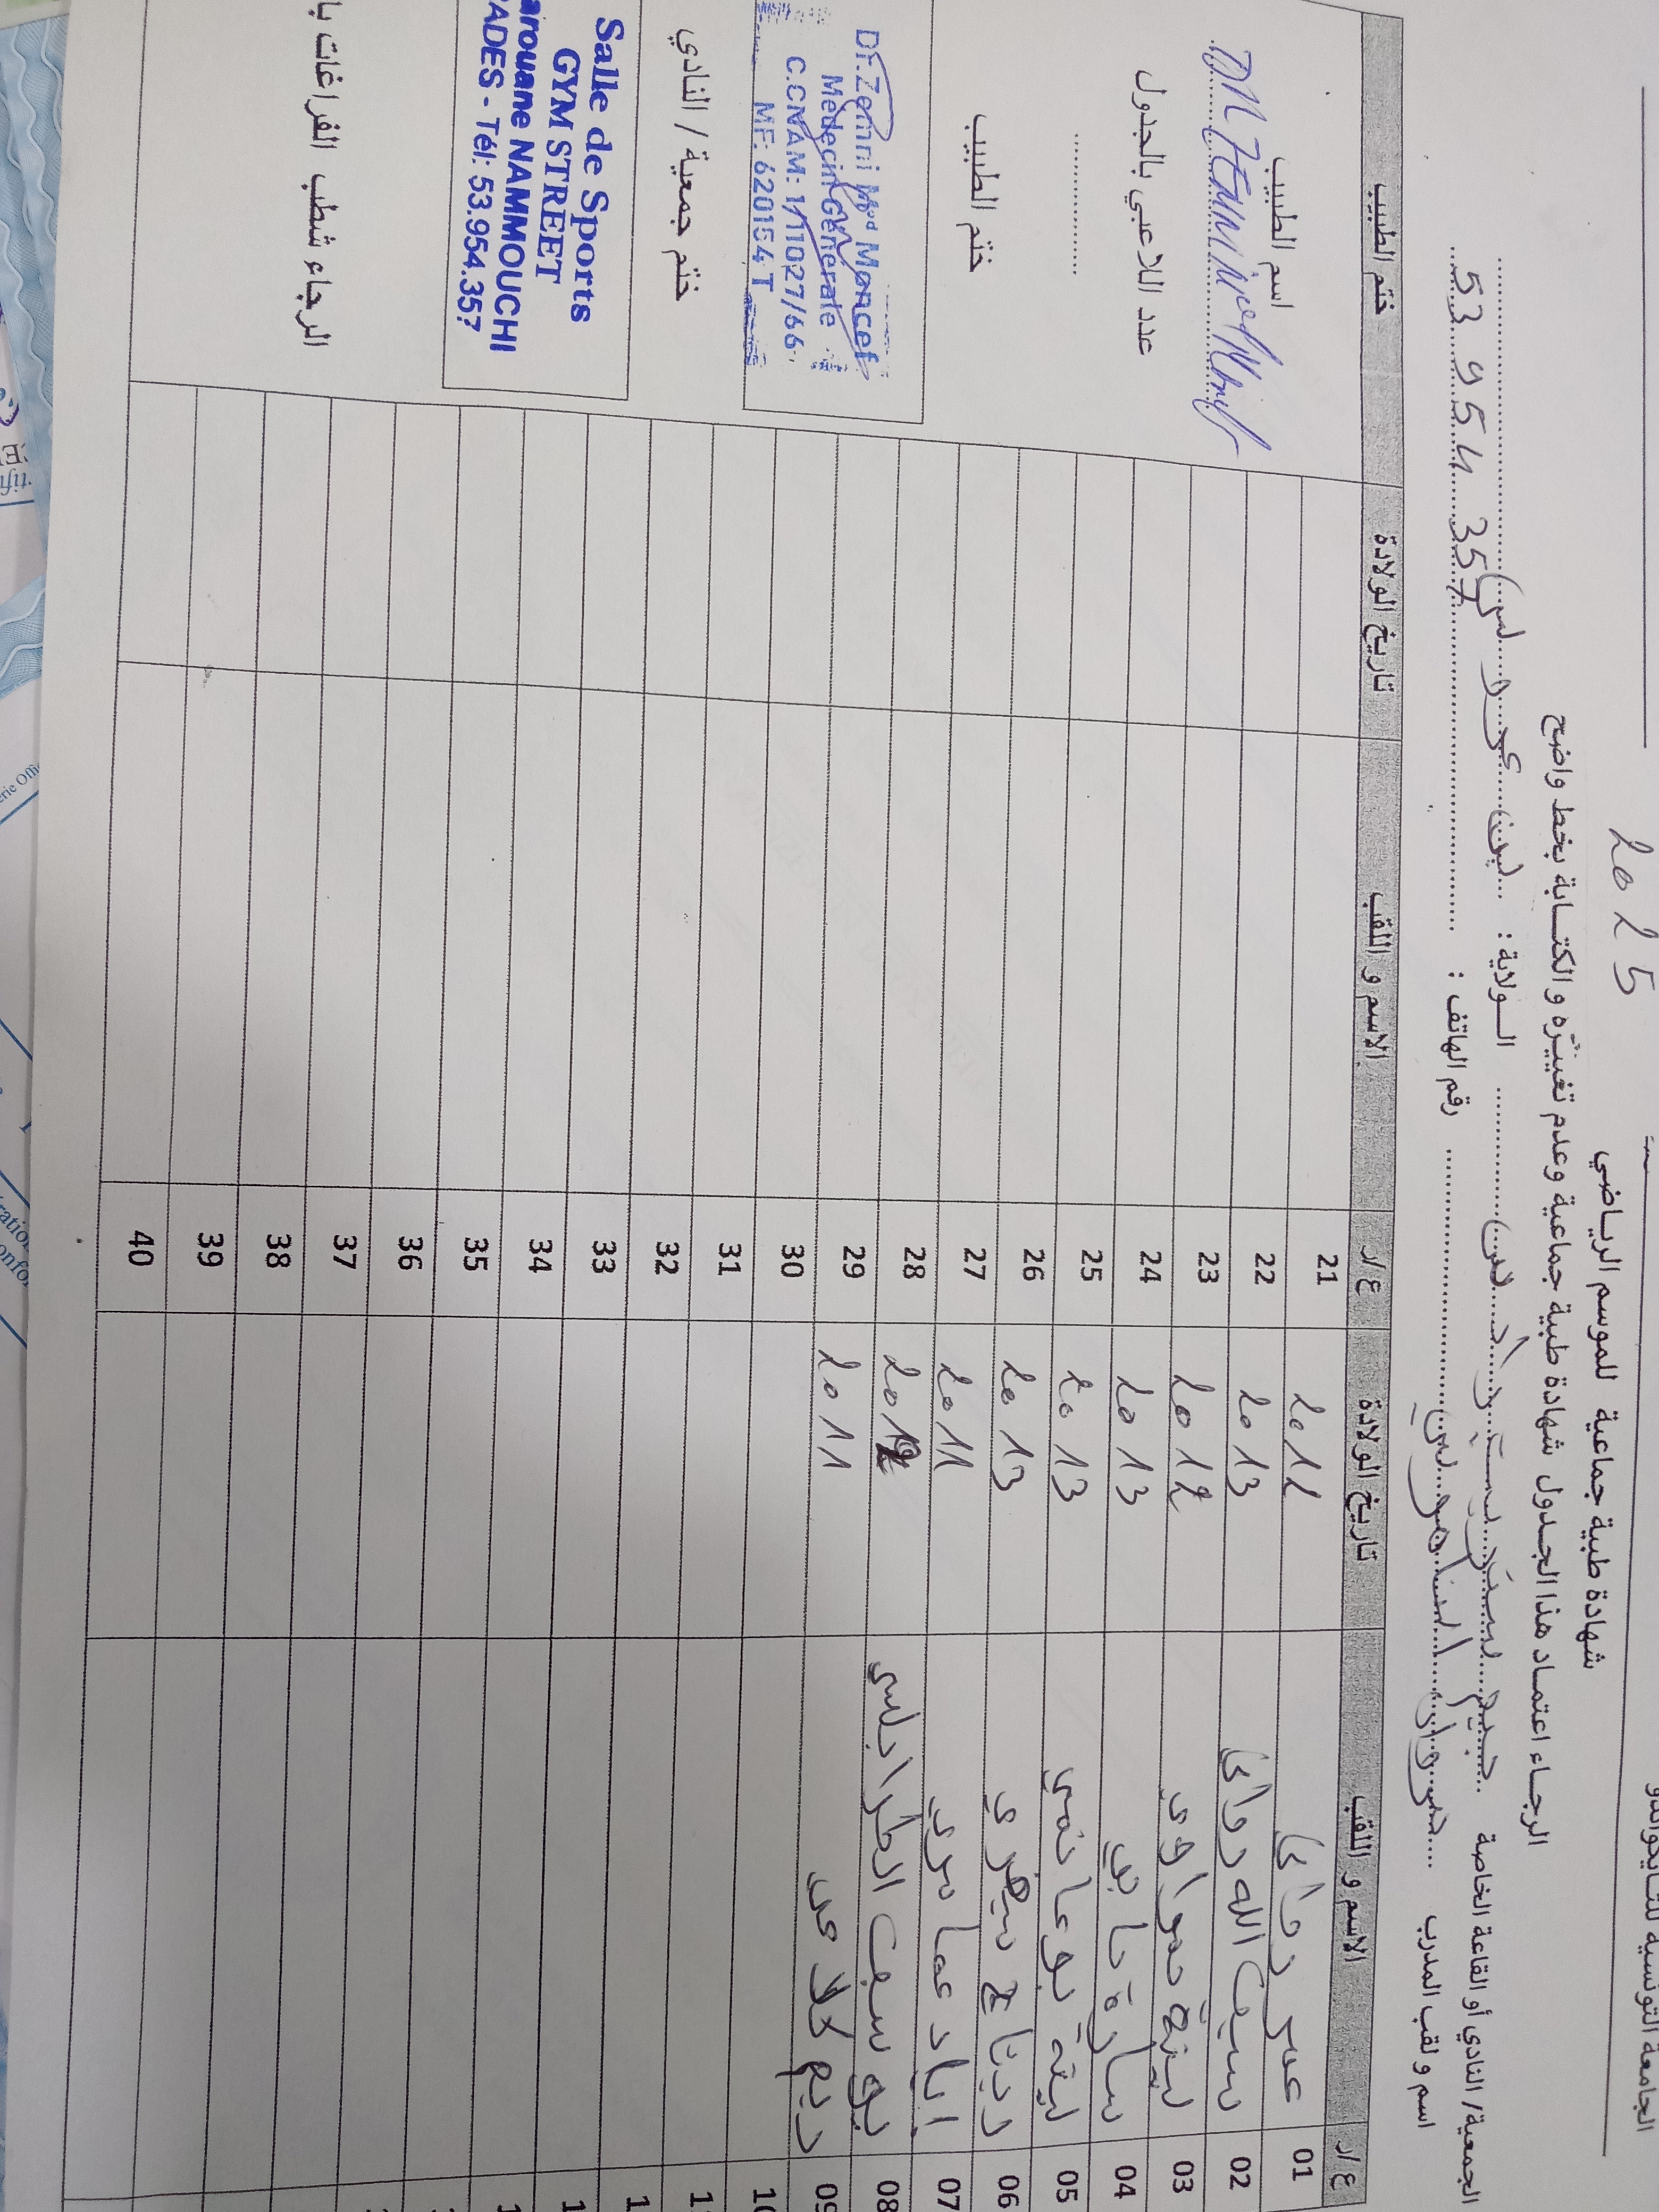 الجامعة التونسية للتايكواندو
شهادة طبية جماعية للموسم الرياضي
2025
الرجاء اعتماد هذا الجدول شهادة طبية جماعية وعدم تغييره والكتابة بخط واضح
الجمعية/ النادي أو القاعة الخاصة جيم ستريت الولاية : بن عروس
اسم و لقب المدرب مروان النموشي رقم الهاتف : 53 954 357
ع/ر الاسم و اللقب تاريخ الولادة ع/ر الاسم و اللقب تاريخ الولادة ختم الطبيب
01 2012 21
02 سيف الله 2013 22
03 2012 23
04 سارة 2013 24
05 2013 25
06 2013 26
07 اياد عمامري 2011 27
08 يوسف الطرابلسي 2012 28
09 ريم 2011 29
30
31
32
33
34
35
36
37
38
39
40
اسم الطبيب
عدد اللاعبي بالجدول
ختم الطبيب
Dr. Zemni Med Moncef
Médecin Générale
C.CNAM: 1/11027/66
MF: 620154T
ختم جمعية / النادي
Salle de Sports
GYM STREET
arouane NAMMOUCHI
ADES - Tél: 53.954.357
الرجاء شطب الفراغات با